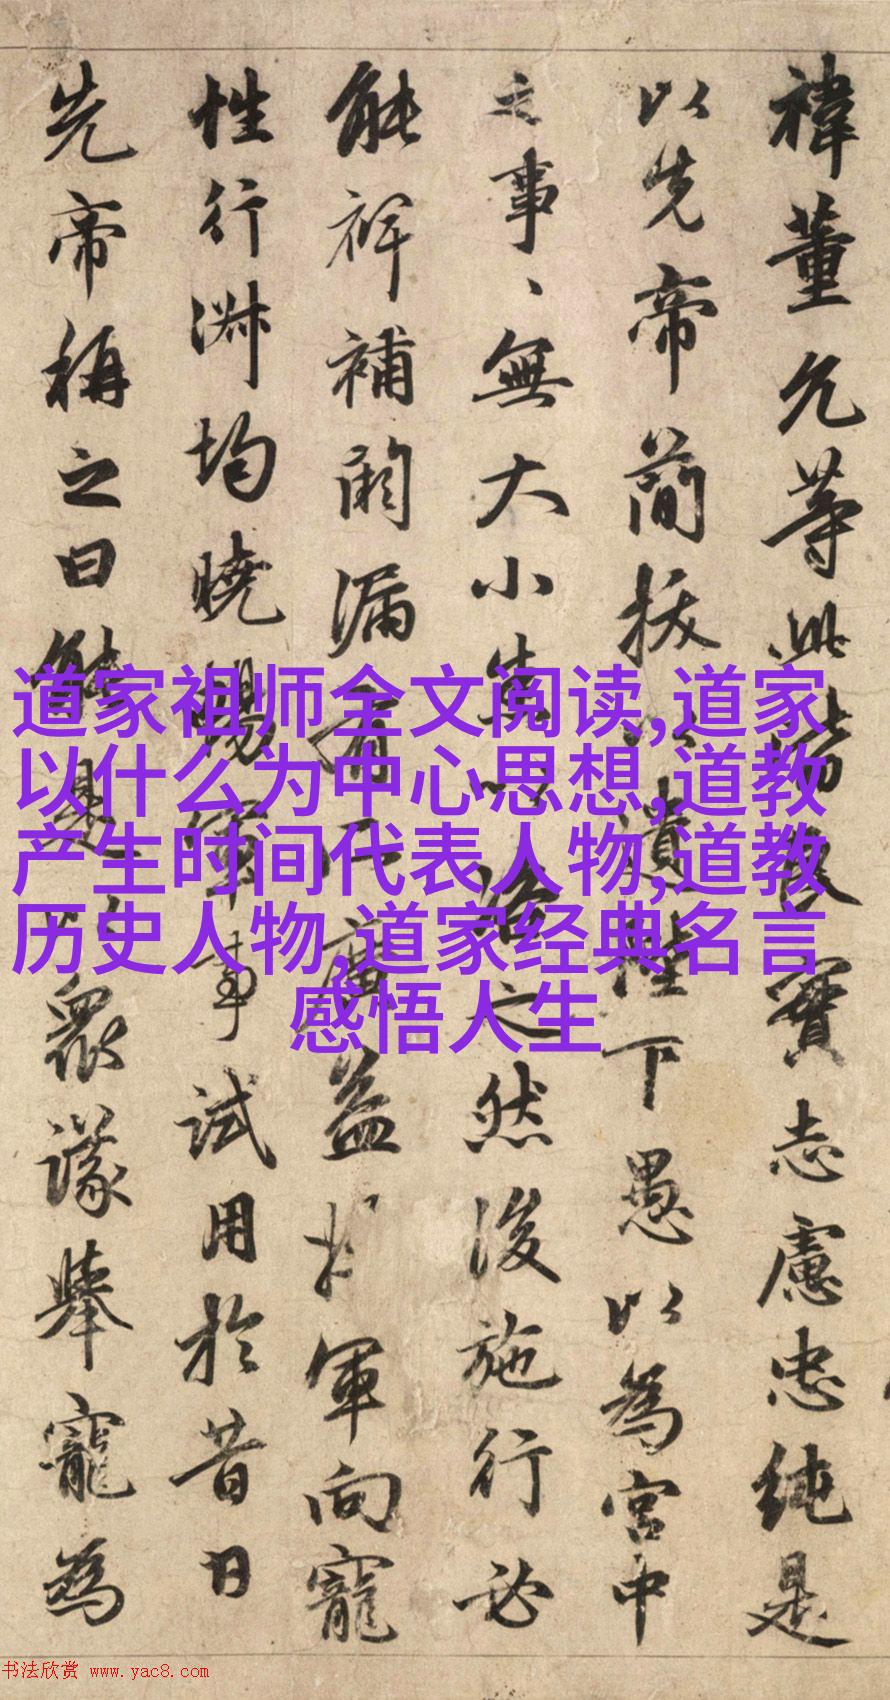 禕董允等此皆良實志慮忠純是
以先帝簡拔以遺陛下愚以為宮中
之事、無大小悉以咨之然後施行必
能裨補闕漏有所廣益將軍向寵
性行淋均曉暢軍事試用於昔日
先帝稱之曰能是以眾議舉寵為
道家祖师全文阅读,道家
以什么为中心思想,道教
产生时间代表人物,道教
历史人物,道家经典名言
感悟人生
书法欣赏 www.yac8.com